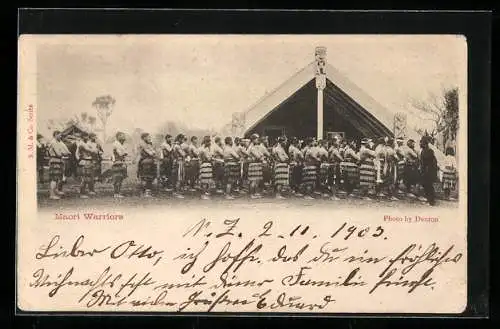 S. M. & Co. Series
Maori Warriors
Photo by Denton
N. Z. 2. 11. 1903.
Lieber Otto, ich hoffe, dass du ein fröhliches
Weihnachtsfest mit deiner Familie feierst.
Mit vielen Grüßen Eduard